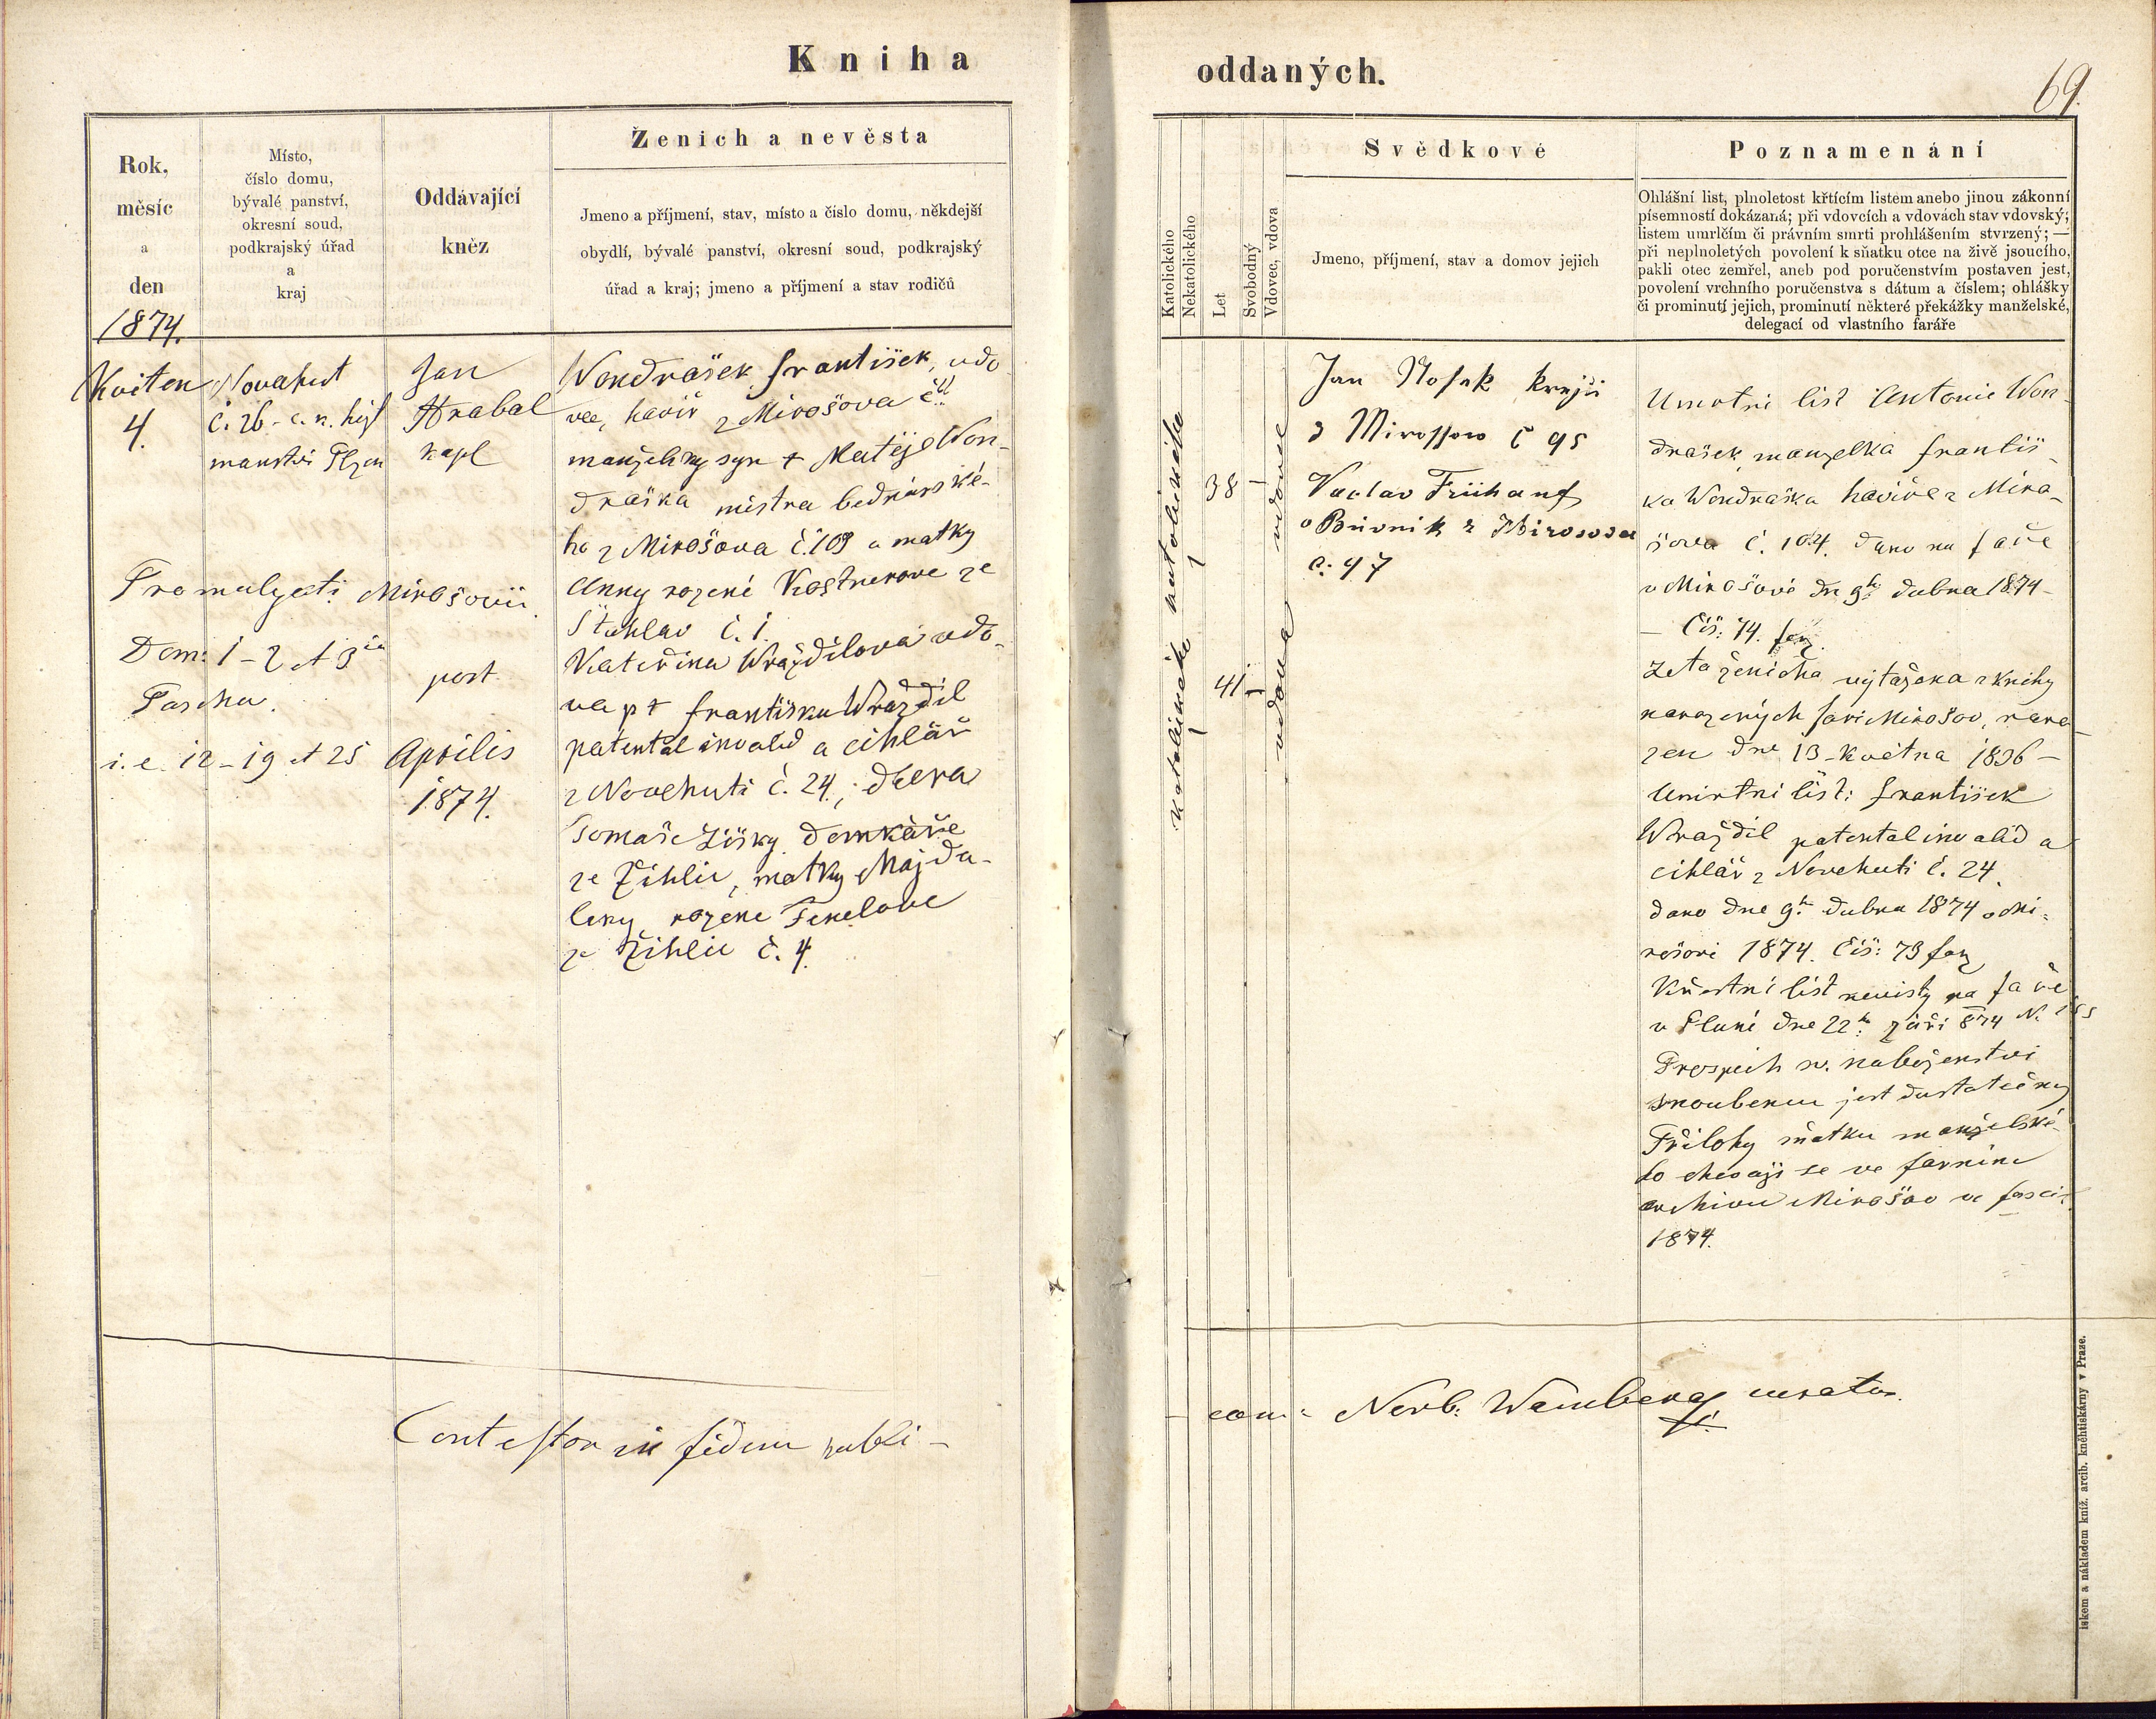 Kniha
oddaných.
69.
Rok,
měsíc
a
den
1874.
Místo,
číslo domu,
bývalé panství,
okresní soud,
podkrajský úřad
a
kraj
Oddávající
kněz
Ženich a nevěsta
Jmeno a příjmení, stav, místo a číslo domu, někdejší
obydlí, bývalé panství, okresní soud, podkrajský
úřad a kraj; jmeno a příjmení a stav rodičů
Katolického
Nekatolického
Let
Svobodný
Vdovec, vdova
Svědkové
Jmeno, příjmení, stav a domov jejich
Poznamenání
Ohlášní list, plnoletost křtícím listem anebo jinou zákonní
písemností dokázaná; při vdovcích a vdovách stav vdovský;
listem umrlčím či právním smrti prohlášením stvrzený; —
při neplnoletých povolení k sňatku otce na živě jsoucího,
pakli otec zemřel, aneb pod poručenstvím postaven jest,
povolení vrchního poručenstva s dátum a číslem; ohlášky
či prominutí jejich, prominutí některé překážky manželské,
delegací od vlastního faráře
Kviten
4.
Novahut
č. 26 - c. k. hejt
manství Plzen
Jan
Hrabal
kapl
Wondrašek František, vdo
vec, havíř z Mirošova č
manželský syn + Matěje Won-
draška mistra bednárské-
ho z Mirošova č. 109 a matky
Anny rozené Kastnerove ze
Štahlav č. 1.
Kateřina Wraždilova vdo-
va p + Františku Wraždil
patental invalid a cihlář
z Novehuti č. 24, dcera
Tomaše Žišky domkáře
ze Žihlic, matky Majda-
leny rozene Fenclove
ze Žihlic č. 4.
Promulgati Mirošovii
Dom: 1 - 2 et 3ia post
Pascha.
i. e. 12 - 19 et 25 Aprilis
1874.
katolického
katolického
38
41
vdovec
vdova
Jan Nosek krejči
z Mirossow č 95
Vaclav Frühauf
z Mirosova
c. 47
Umrtni list Antonie Won-
drašek manzelka Františ-
ka Wondraška havíře z Miro-
šova č. 104. dano na faře
v Mirošově dn 9ho dubna 1874 -
- Čís: 74. far.
Leta ženicha vytažena z knihy
narozených fary Mirošov, naro-
zen dne 13 - května 1836 -
Umrtni list: František
Wraždil patental invalid a
cihlář z Novehuti č. 24.
dano dne 9ho dubna 1874 v Mi-
rošově 1874. Čís: 73 far
Křestní list nevisty na faře
dne 22ho září 874 N.
Prospěch sv. naboženstvi
snoubencu jest dostatečný
Přilohy sňatku manželské-
ho chovaji se ve farnim
archivu Mirošov ve fasci.
1874.
Contestor in fidem publi-
cam: Norb: curatus.
iskem a nákladem kníž. arcib. knéhtiskárny v Praze.